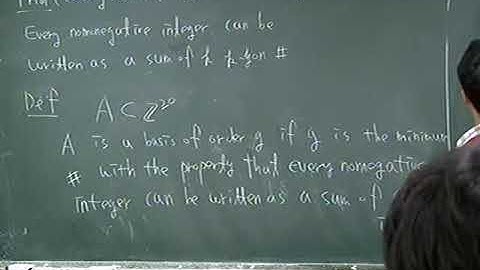 Every nonnegative integer can be
written as a sum of k k-gon #
Def A ⊂ ℤ^≥0
A is a basis of order g if g is the minimum
# with the property that every nonnegative
integer can be written as a sum of